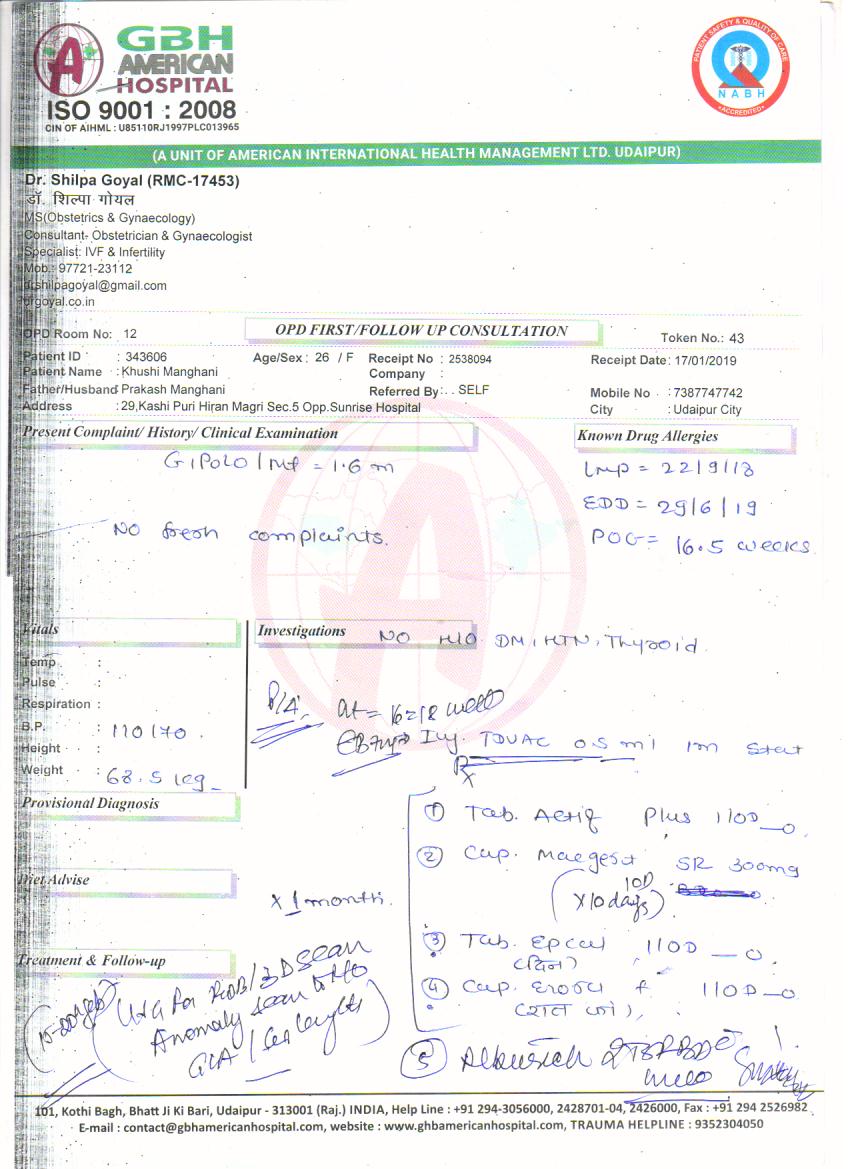 GBH
AMERICAN
HOSPITAL
ISO 9001 : 2008
CIN OF AIHML : U85110RJ1997PLC013965
PATIENT SAFETY & QUALITY OF CARE
NABH
ACCREDITED
(A UNIT OF AMERICAN INTERNATIONAL HEALTH MANAGEMENT LTD. UDAIPUR)
Dr. Shilpa Goyal (RMC-17453)
डॉ. शिल्पा गोयल
MS(Obstetrics & Gynaecology)
Consultant- Obstetrician & Gynaecologist
Specialist: IVF & Infertility
Mob.: 97721-23112
drshilpagoyal@gmail.com
drgoyal.co.in
OPD Room No: 12 OPD FIRST/FOLLOW UP CONSULTATION Token No.: 43
Patient ID : 343606 Age/Sex : 26 / F Receipt No : 2538094 Receipt Date: 17/01/2019
Patient Name : Khushi Manghani Company :
Father/Husband Prakash Manghani Referred By : . SELF Mobile No : 7387747742
Address : 29,Kashi Puri Hiran Magri Sec.5 Opp.Sunrise Hospital City : Udaipur City
Present Complaint/ History/ Clinical Examination Known Drug Allergies
G1P0L0 / Mf = 1.6 m Lmp = 22/9/18
EDD = 29/6/19
No fresh complaints. POG = 16.5 weeks
Vitals Investigations NO H/O DM, HTN, Thyroid
Temp :
Pulse :
Respiration : P/A
B.P. : 110/70 Inj. TDVAC 0.5 ml im Stat
Height :
Weight : 68.5 kg Rx
Provisional Diagnosis
① Tab. Actif Plus 1 OD
② Cap. SR 300mg
Diet Advise 1 OD
x 1 month. x 10 days
③ Tab. 1 OD
Treatment & Follow-up (दिन)
USG for 3D scan ④ Cap. 1 OD
Anomaly scan
⑤
101, Kothi Bagh, Bhatt Ji Ki Bari, Udaipur - 313001 (Raj.) INDIA, Help Line : +91 294-3056000, 2428701-04, 2426000, Fax : +91 294 2526982
E-mail : contact@gbhamericanhospital.com, website : www.ghbamericanhospital.com, TRAUMA HELPLINE : 9352304050